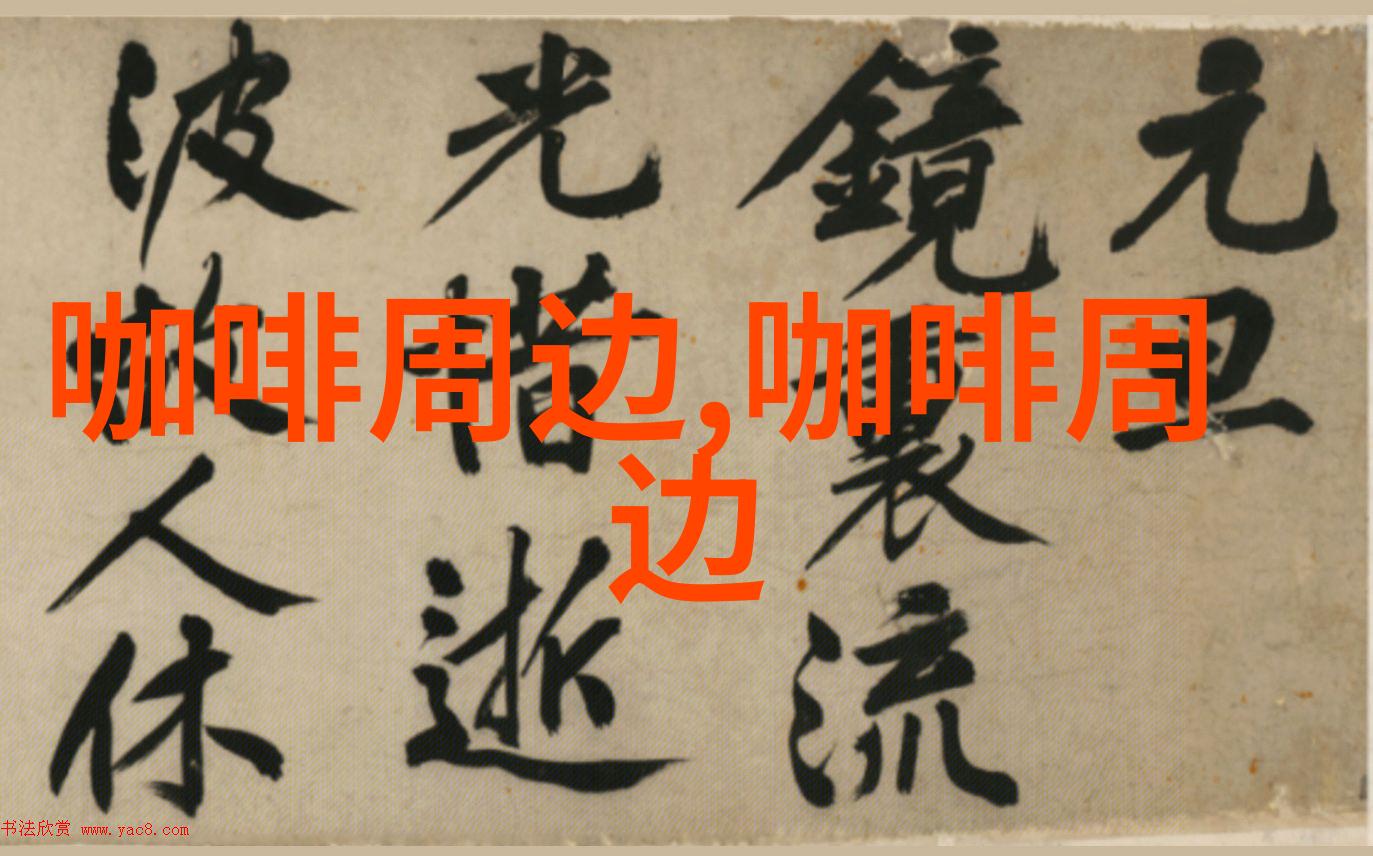 元旦
鏡裏流
光惜逝
波故人休
咖啡周边,咖啡周
边
书法欣赏 www.yac8.com